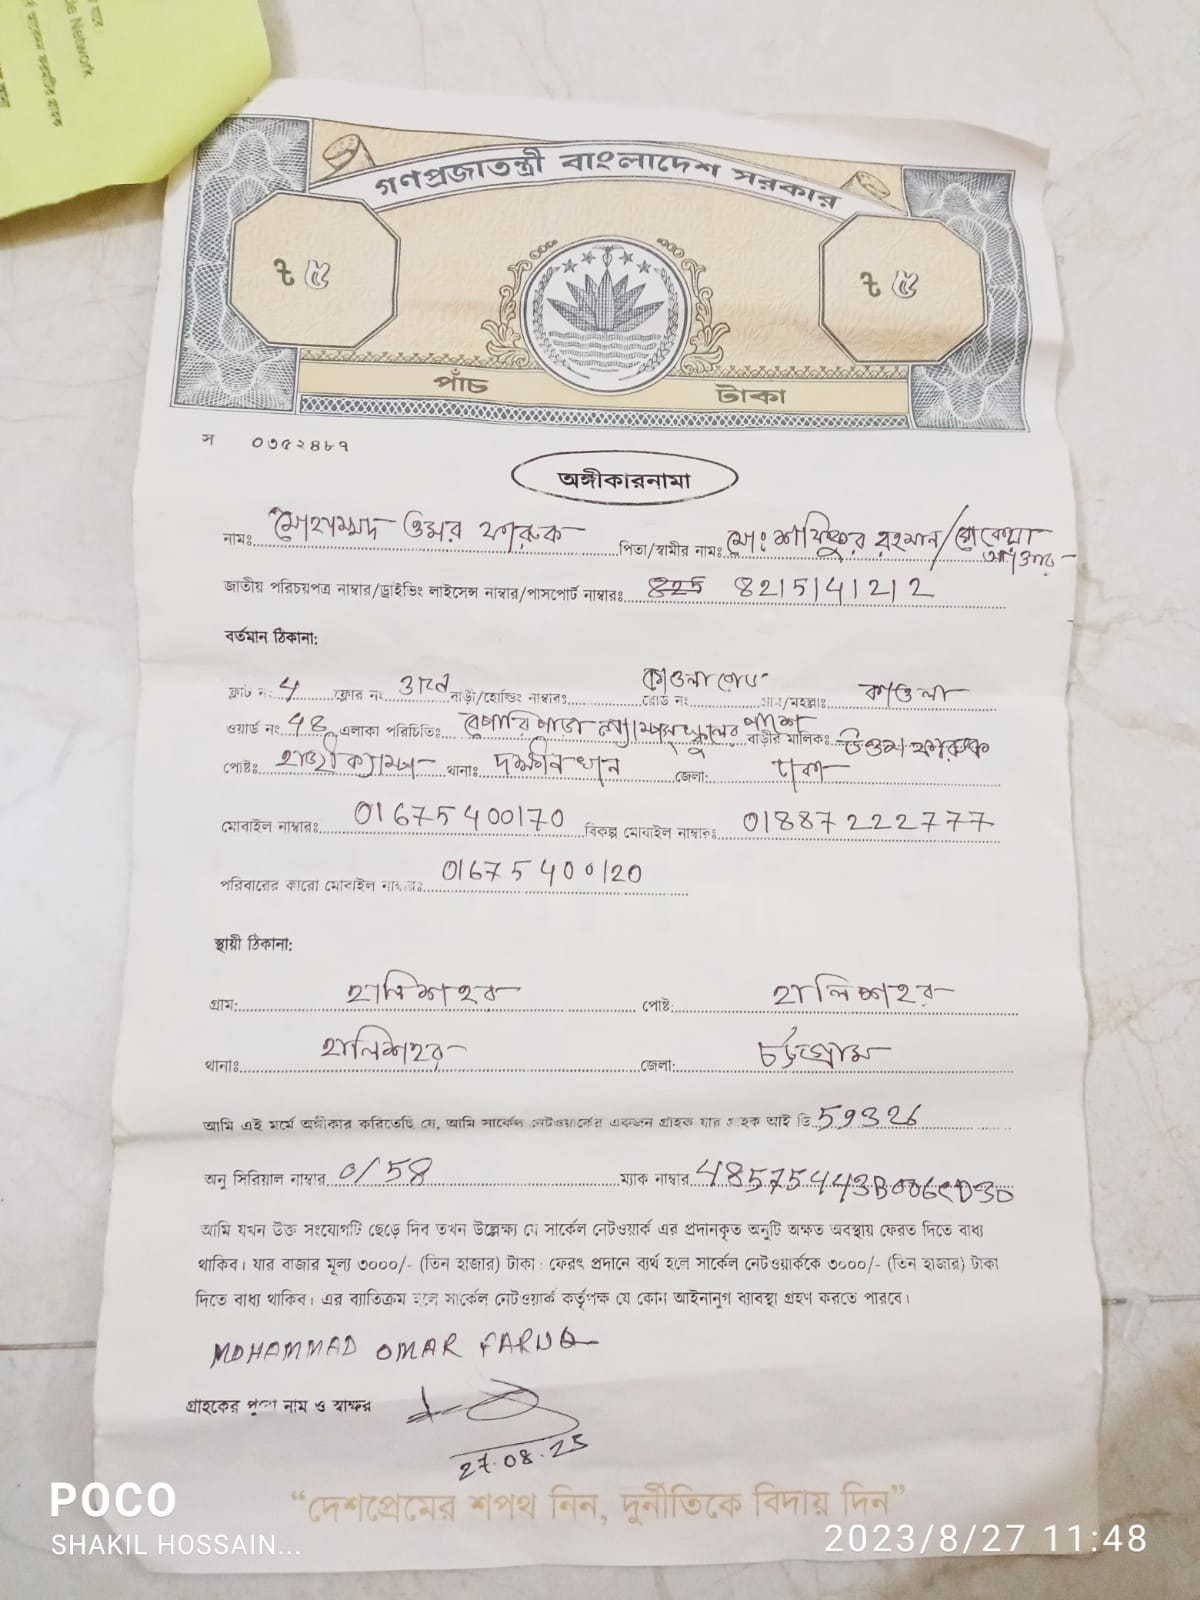 de Network
গণপ্রজাতন্ত্রী বাংলাদেশ সরকার
৳ ৫ ৳ ৫
পাঁচ টাকা
স ০৩৫২৪৮৭
অঙ্গীকারনামা
নামঃ মোহাম্মদ ওমর ফারুক পিতা/স্বামীর নামঃ মোঃ শাফিকুর রহমান/রোকেয়া আক্তার
জাতীয় পরিচয়পত্র নাম্বার/ড্রাইভিং লাইসেন্স নাম্বার/পাসপোর্ট নাম্বারঃ 8215141212
বর্তমান ঠিকানা:
ফ্লাট নং 4 ফ্লোর নং 3rd বাড়ী/হোল্ডিং নাম্বারঃ কাওলা রোড রোড নং গ্রাম/মহল্লাঃ কাওলা
ওয়ার্ড নং 48 এলাকা পরিচিতিঃ বেপারি পাড়া ল্যাম্পস স্কুলের পাশে বাড়ীর মালিকঃ ফারুক
পোষ্টঃ হাজী ক্যাম্প থানাঃ দক্ষনি খান জেলা: ঢাকা
মোবাইল নাম্বারঃ 01675400170 বিকল্প মোবাইল নাম্বারঃ 01887222777
পরিবারের কারো মোবাইল নাম্বারঃ 01675400120
স্থায়ী ঠিকানা:
গ্রাম: হালিশহর পোষ্ট: হালিশহর
থানাঃ হালিশহর জেলা: চট্টগ্রাম
আমি এই মর্মে অঙ্গীকার করিতেছি যে, আমি সার্কেল নেটওয়ার্কের একজন গ্রাহক যার গ্রাহক আই ডি 59326
অনু সিরিয়াল নাম্বার 0/58 ম্যাক নাম্বার 48575443B006CD30
আমি যখন উক্ত সংযোগটি ছেড়ে দিব তখন উল্লেক্ষ্য যে সার্কেল নেটওয়ার্ক এর প্রদানকৃত অনুটি অক্ষত অবস্থায় ফেরত দিতে বাধ্য
থাকিব। যার বাজার মূল্য ৩০০০/- (তিন হাজার) টাকা। ফেরৎ প্রদানে ব্যর্থ হলে সার্কেল নেটওয়ার্ককে ৩০০০/- (তিন হাজার) টাকা
দিতে বাধ্য থাকিব। এর ব্যাতিক্রম হলে সার্কেল নেটওয়ার্ক কর্তৃপক্ষ যে কোন আইনানুগ ব্যাবস্থা গ্রহণ করতে পারবে।
MOHAMMAD OMAR FARUQ
গ্রাহকের পুরো নাম ও স্বাক্ষর
27.08.23
“দেশপ্রেমের শপথ নিন, দুর্নীতিকে বিদায় দিন”
POCO
SHAKIL HOSSAIN...
2023/8/27 11:48